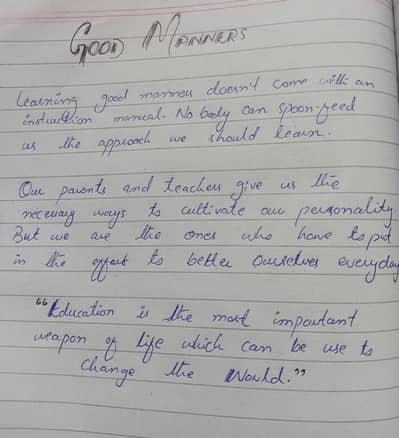 GOOD MANNERS
Learning good manners doesn't come with an
instruction manual. No body can spoon-feed
us the approach we should learn.
Our parents and teachers give us the
necessary ways to cultivate our personality.
But we are the ones who have to put
in the effort to better ourselves everyday
"Education is the most important
weapon of life which can be use to
change the World."